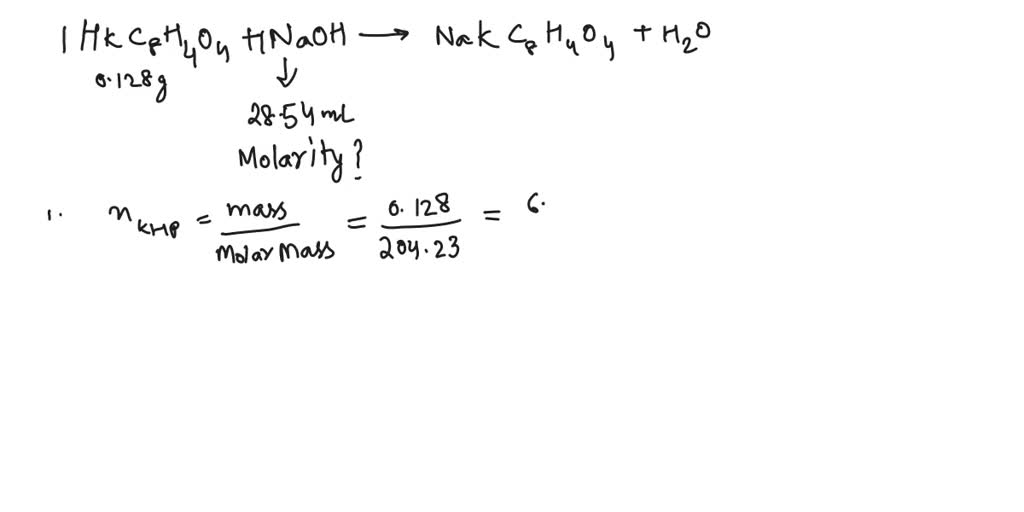 1 HKC8H4O4 + 1NaOH → NaKC8H4O4 + H2O
0.128g ↓
28.54 mL
Molarity?
1. nKHP = mass / Molar Mass = 0.128 / 204.23 = 6.